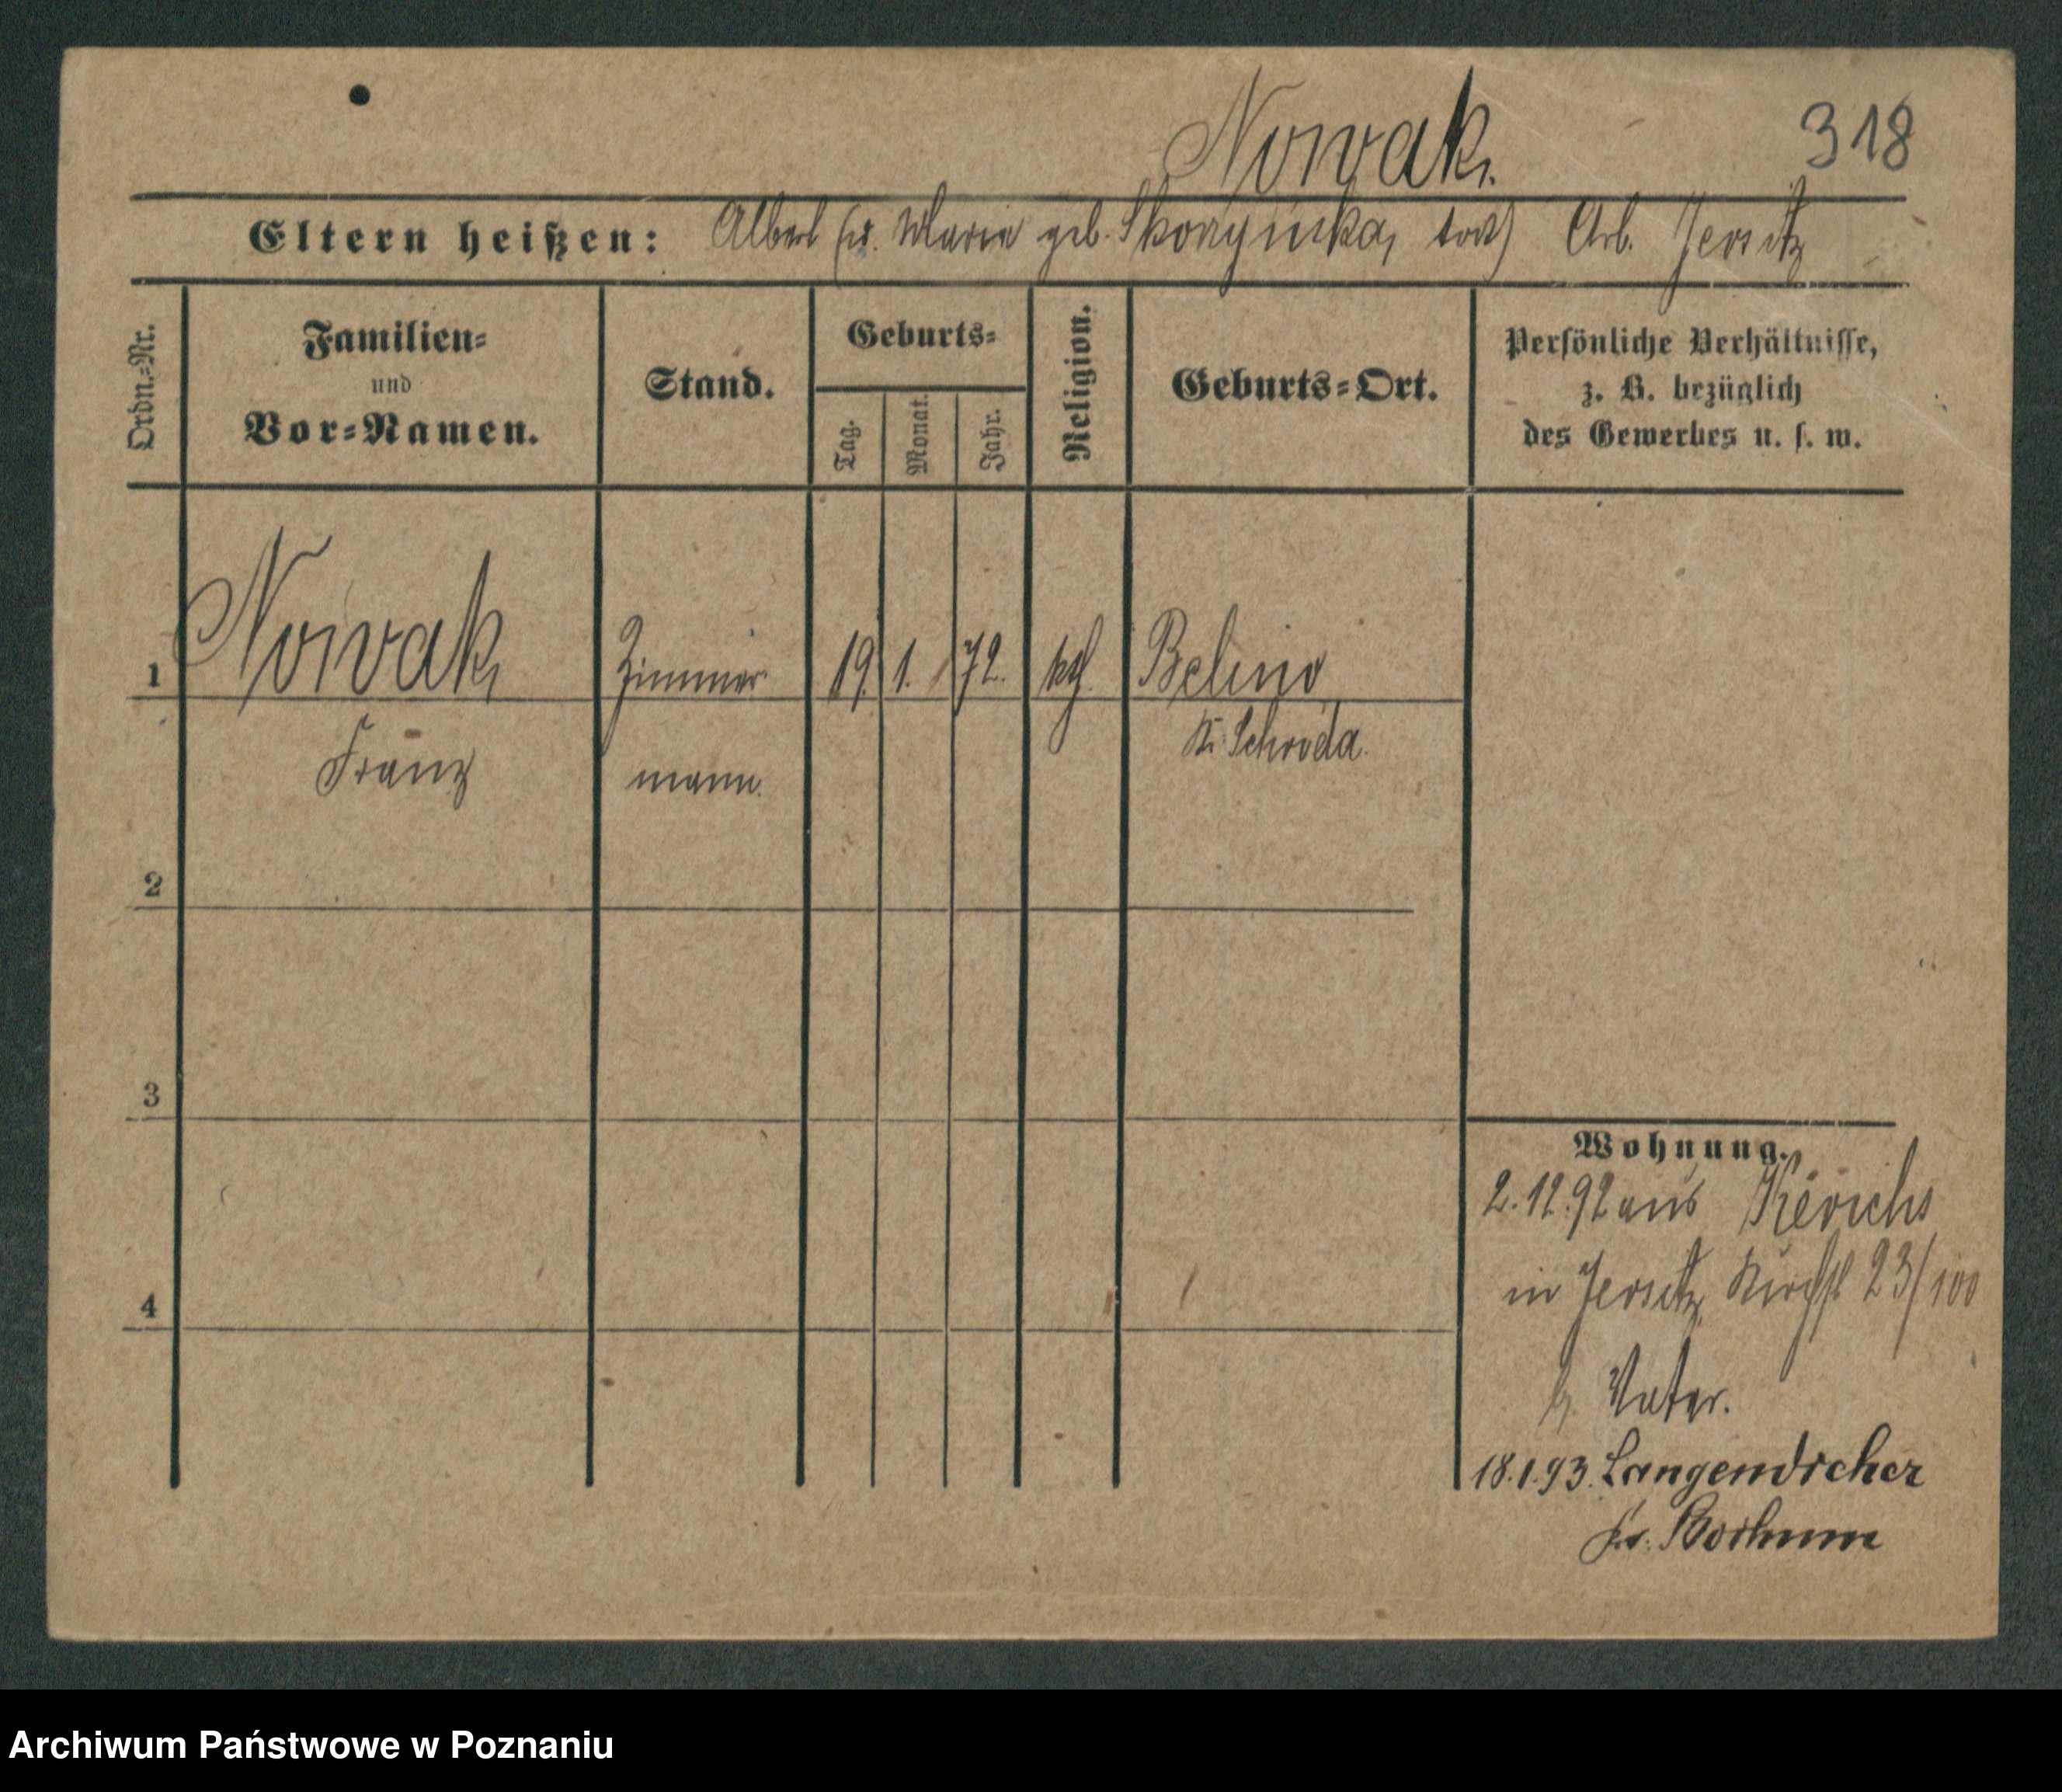 Nowak.
318
Eltern heißen: Albert (u. Maria geb. tot) Arb. Jersitz
Ordn.-Nr.
Familien-
und
Vor-Namen.
Stand.
Geburts-
Tag.
Monat.
Jahr.
Religion.
Geburts-Ort.
Persönliche Verhältnisse,
z. B. bezüglich
des Gewerbes u. s. w.
1 Nowak Zimmer 19. 1. 72. ktl. Belino
Franz mann. Kr. Schroda.
2
3
4
Wohnung.
2.12.92 aus
in Jersitz, Kirchst 23/100
b. Vater.
18.1.93. Langendreher
Kr. Bochum
Archiwum Państwowe w Poznaniu